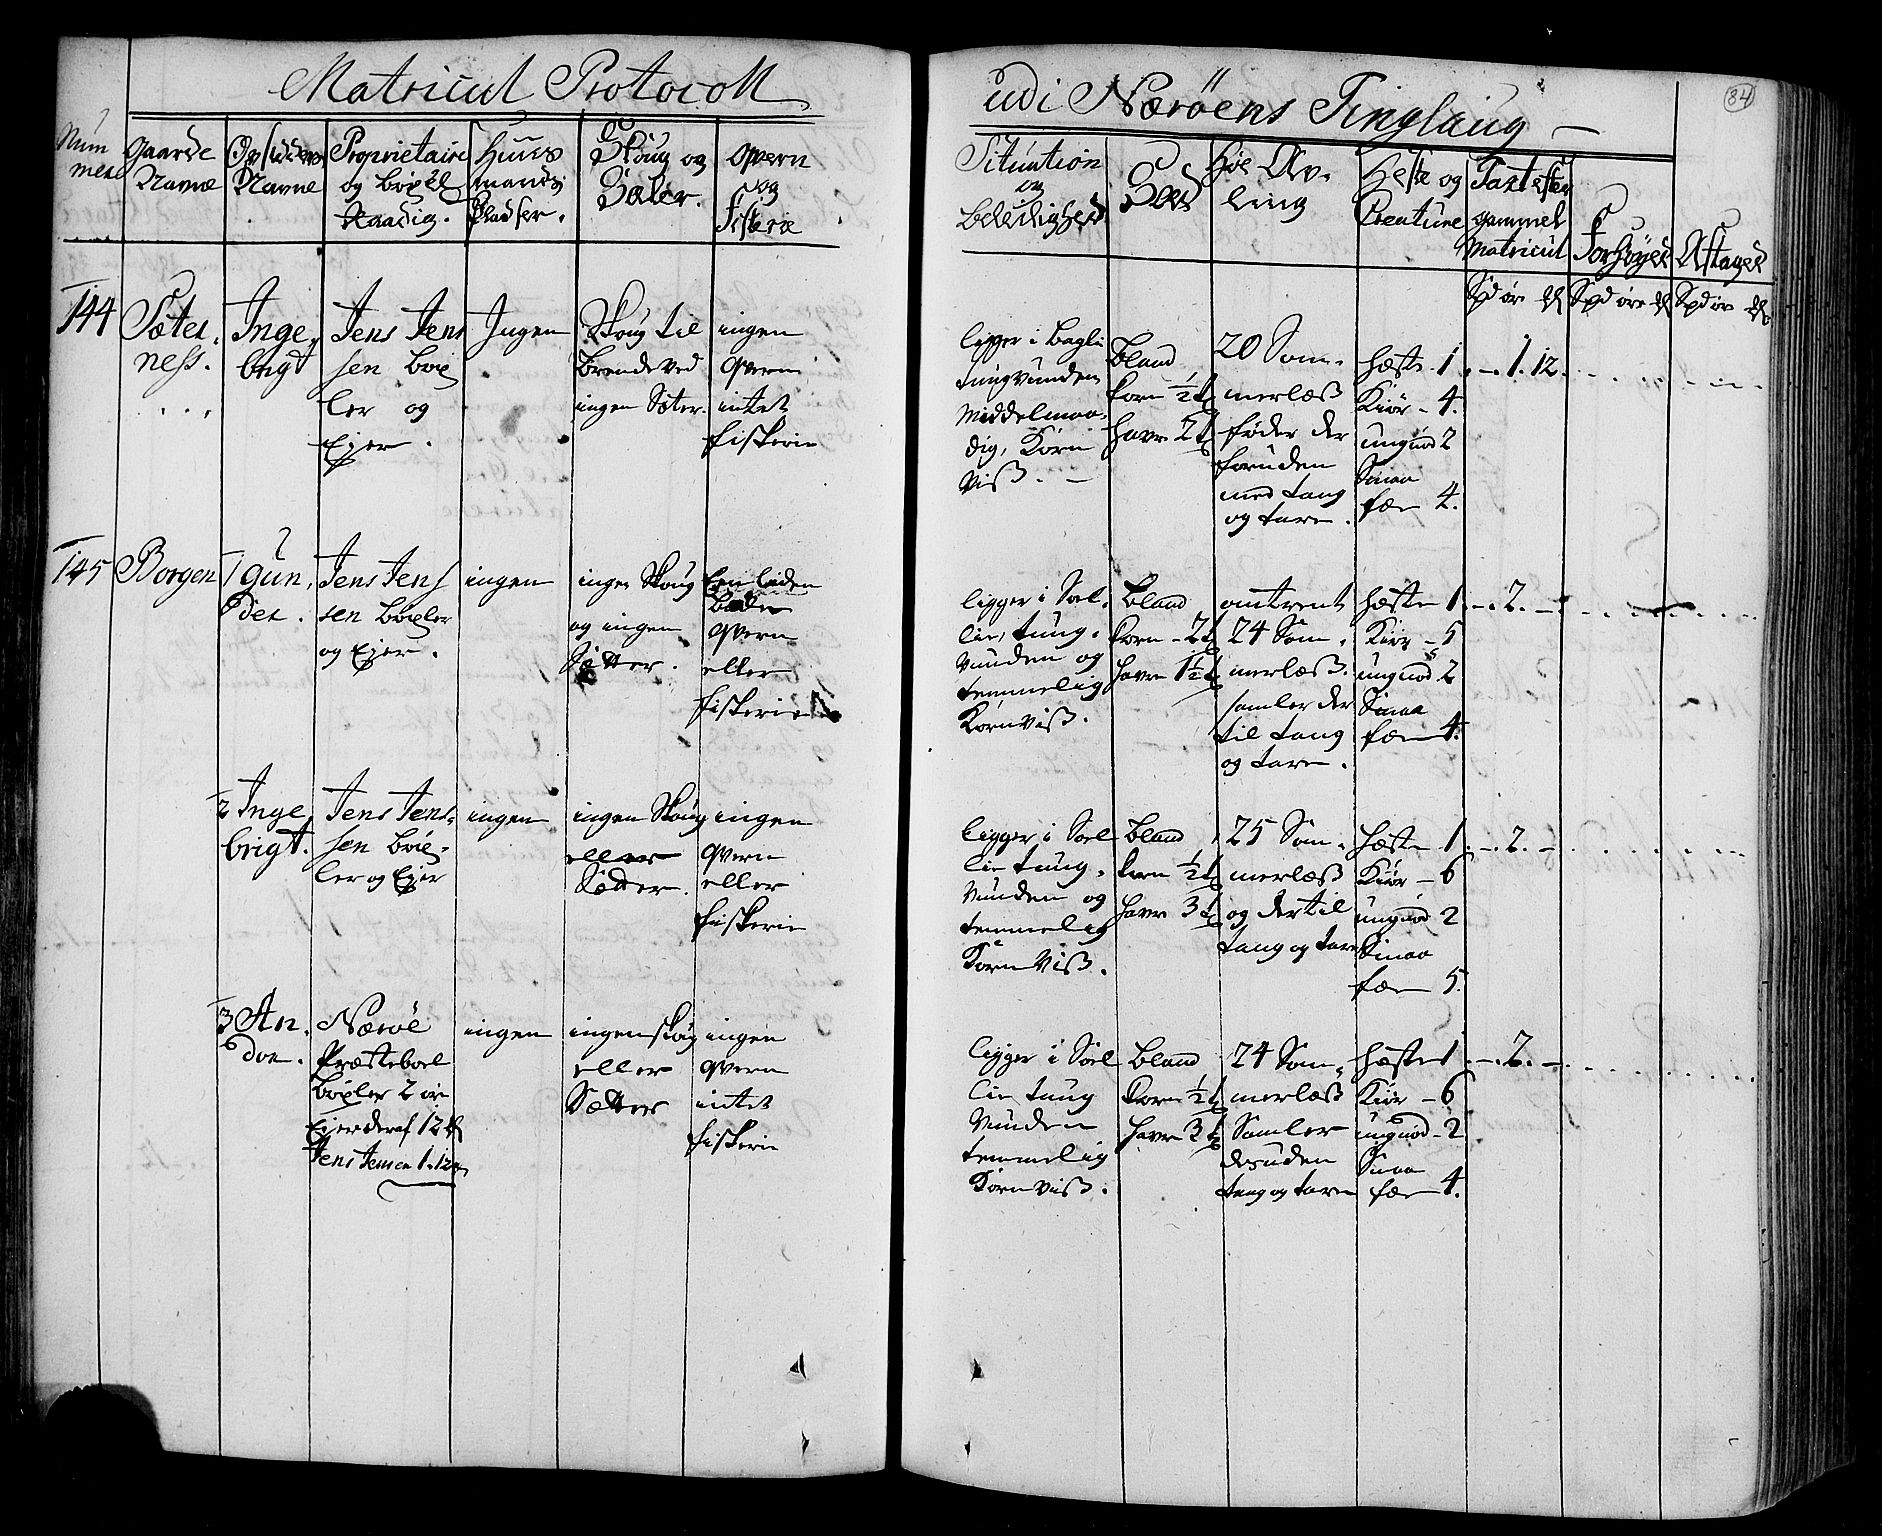 Matricul Protocoll
udi Næröens Tinglaug
84
Num
mer
Gaarde
Navne
Opsidder
Navne
Proprietair
og böxel
Raadig.
Huus
mands
Pladser.
Skoug og
Sæter.
Qvern
og
fiskerie
Situation
og
beleilighed
Sæd
Höe Av
ling
Heste og
Creature
Taxt efter
gammel
Matricul
Forhöyed
Aftaged
Spd ör
Spd öre
Spd ör
144
Sæter
ness.
Inge
brigt
Jens Jens
sen böx
ler og
Ejer.
Ingen
Skoug til
brendeved
ingen Sæter.
ingen
qvern
intet
fiskerie
liger i bagli
tungvunden
Middelmaa
dig, Korn
viß.
bland
korn ½ t
havre 2 t
20 Som
merlæß
föder der
foruden
med tang
og tare.
hæste 1
Kiör 4.
ungnöd 2
Smaa
fæe 4.
1. 12.
145
Borgen
1 Gun
der.
Jens Jens
sen böxler
og Ejer.
ingen
ingen Skoug
og ingen
Sætter.
Een liden
qvern
eller
fiskerie
ligger i Soel
lie, tung
vunden og
temmelig
Kornviß.
bland
korn 2 t
havre 1½ t
omtrent
24 Som
merlæß.
samler der
til tang
og tare.
hæste 1
Kiör 5
ungnöd 2
Smaa
fæe 4.
2.
2 Inge
brigt.
Jens Jens
sen böx
ler og Ejer
ingen
ingen Skoug
eller
Sætter.
ingen
qvern
eller
fiskerie
ligger i Soel
lie tung
vunden og
temmelig
Korn viß.
bland
korn ½ t
havre 3 t
25 Som
merlæß
og dertil
tang og tare
hæste 1
Kiör 6
ungnöd 2
Smaa
fæe 5.
2.
3 An
don.
Næröe
Præsteboel
böxler 2 ör
Ejer deraf 12
Jens Jensen 1. 12
ingen
ingen skoug
eller
Sætter
ingen
qvern
intet
fiskerie
ligger i Soel
lie tung
vunden
temmelig
Korn viß.
bland
korn ½ t
havre 3 t
24 Som
merlæß
Samler
desuden
tang og tare
hæste 1
Kiör 6
ungnöd 2
Smaa
fæe 4.
2.